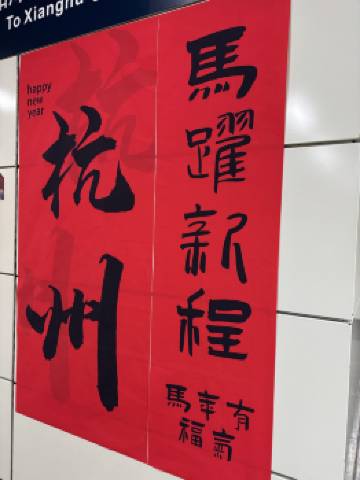 To Xianghu
happy
new
year
杭州
馬躍新程
馬年有
福氣